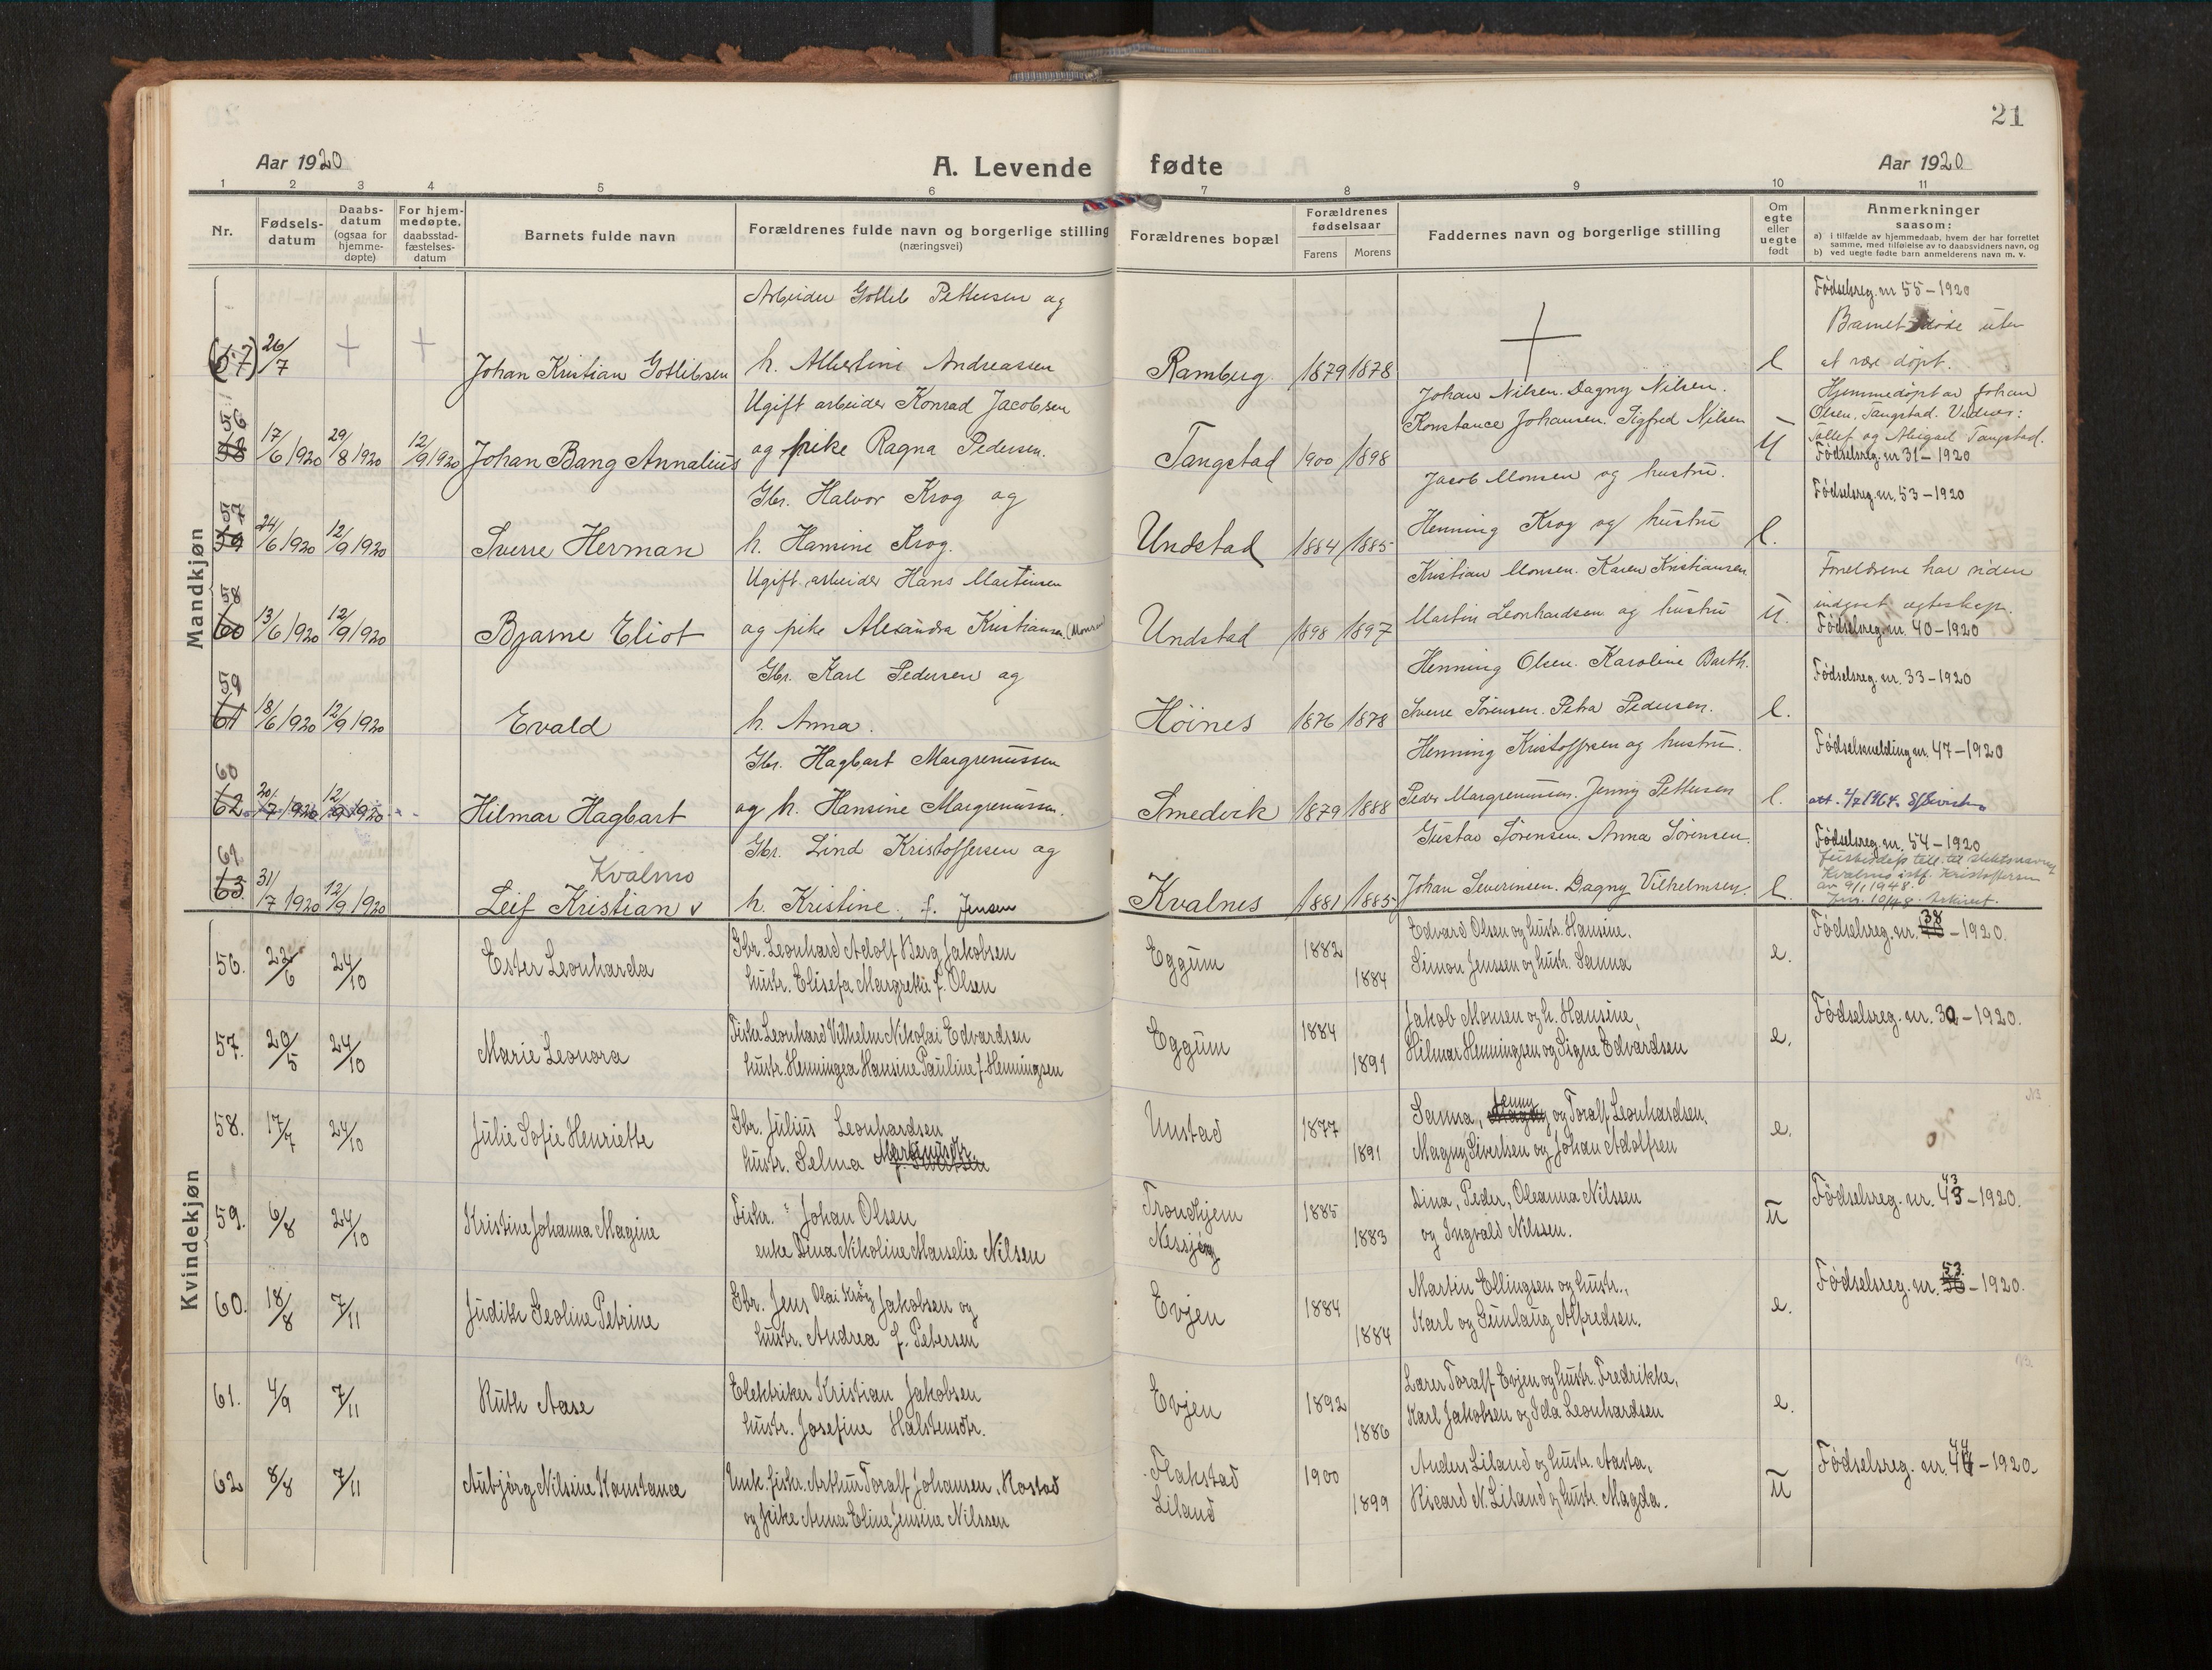 21
Aar 1920
A. Levende fødte
Aar 1920
1 2 3 4 5 6 7 8 9 10 11
Nr.
Fødsels-datum
Daabs-datum (ogsaa for hjemme-døpte)
For hjem-medøpte, daabsstad-fæstelses-datum
Barnets fulde navn
Forældrenes fulde navn og borgerlige stilling (næringsvei)
Forældrenes bopæl
Forældrenes fødselsaar
Farens Morens
Faddernes navn og borgerlige stilling
Om egte eller uegte født
Anmerkninger saasom:
a) i tilfælde av hjemmedaab, hvem der har forrettet samme, med tilføielse av to daabsvidners navn, og
b) ved uegte fødte barn anmelderens navn m. v.
Mandkjøn
Arbeider Gotlib Pettersen og
Fødselsreg. nr 55 – 1920
Barnet døde uten
(57) 26/7 + + Johan Kristian Gotlibsen h. Albertine Andreassen Ramberg 1879 1878 + e at være døpt.
Ugift arbeider Konrad Jacobsen
Johan Nilsen. Dagny Nilsen.
Hjemmedøpt av Johan
Olsen, Tangstad. Vidner:
56 58 17/6 1920 29/8 1920 12/9 1920 Johan Bang Annalius og pike Ragna Pedersen. Tangstad 1900 1898 Konstance Johansen. Sigfred Nilsen U Tollef og Abigael Tangstad.
Fødselsreg. nr 31 – 1920
Gbr. Halvor Krog og
Jacob Monsen og hustru.
Fødselsreg. nr. 53 – 1920
57 59 24/6 1920 12/9 1920 Sverre Herman h. Hansine Krog. Undstad 1884 1885 Henning Krog og hustru e.
Ugift arbeider Hans Martinsen
Kristian Monsen. Karen Kristiansen
Foreldrene har siden
indgaat egteskap.
58 60 13/6 1920 12/9 1920 Bjarne Eliot og pike Alexandra Kristiansen (Monsen) Undstad 1898 1897 Martin Leonhardsen og hustru U.
Fødselsreg. nr. 40 – 1920
Gbr. Karl Pedersen og
Henning Olsen. Karoline Barth.
Fødselsreg. nr. 33 – 1920
59 61 18/6 1920 12/9 1920 Evald h. Anna. Høines 1876 1878 Sverre Sørensen. Petra Pedersen. e.
Gbr. Hagbart Margrenussen
Henning Kristoffersen og hustru.
Fødselsmelding nr. 47 – 1920
60 62 20/7 1920 12/9 1920 Hilmar Hagbart og h. Hansine Margrenussen. Smedvik 1879 1888 Peder Margrenussen. Jenny Pettersen e. att. 4/7 1964.
Gbr. Lind Kristoffersen og
Gustav Sørensen. Anna Sørensen.
Fødselsreg. nr. 54 – 1920
Kvalmo
61 63 31/7 1920 12/9 1920 Leif Kristian v h. Kristine, f. Jensen Kvalnes 1881 1885 Johan Severinsen. Dagny Vilhelmsen. e.
till. til slektsnavnet
Kvalmo istf. Kristoffersen
av 9/1 1948.
Kvindekjøn
56. 22/6 24/10 Ester Leonharda Gbr. Leonhard Adolf Berg Jakobsen Eggum 1882 Edvard Olsen og hustr. Hansine, e. Fødselsreg. nr. 38 – 1920.
hustr. Elisefa Margrethe f. Olsen 1884 Simon Jenssen og hustr. Sanna
57. 20/5 24/10 Marie Leonora Fisker Leonhard Vilhelm Nikolai Edvardsen Eggum 1884 Jakob Monsen og h. Hansine, e. Fødselsreg. nr. 30 – 1920.
hustr. Henningea Hansine Pauline f. Henningsen 1891 Hilmar Henningsen og Signe Edvardsen
58. 17/7 24/10 Julie Sofie Henriette Gbr. Julius Leonhardsen Unstad 1877 Sanna, Magny Jenny og Toralf Leonhardsen, e.
hustr. Selma Martinusdtr. 1891 Magny Sivertsen og Johan Adolfsen
59. 6/8 24/10 Kristine Johanna Magine Fiskr. Johan Olsen Trondhjem 1885 Dina, Peder, Oleanna Nilssen u Fødselsreg. nr. 43 – 1920.
enke Dina Nikoline Marselie Nilsen Nessjøen 1883 og Ingvald Nilssen.
60. 18/8 7/11 Judith Geoline Petrine Gbr. Jens Olai Krog Jakobsen og Evjen 1884 Martin Ellingsen og hustr., e. Fødselsreg. nr. 53. – 1920.
hustr. Andrea f. Petersen 1884 Karl og Gunlaug Alfredsen.
61. 4/9 7/11 Ruth Aase Elektriker Kristian Jakobsen Evjen 1892 Lærer Toralf Evjen og hustr. Fredrikke, e.
hustr. Josefine Halstensdtr. 1886 Karl Jakobsen og Ida Leonhardsen
62 8/8 7/11 Aubjørg Nilsine Konstance Unk. fiskr. Arthur Toralf Johansen, Rostad Flakstad 1900 Anders Liland og hustr. Aasta, u Fødselsreg. nr. 44 – 1920.
og pike Anna Eline Jensine Nilssen Liland 1899 Ricard N. Liland og hustr. Magda.